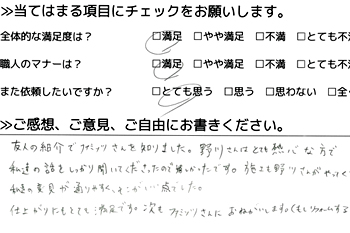 ≫当てはまる項目にチェックをお願いします。
全体的な満足度は？ □満足 □やや満足 □不満 □とても不
職人のマナーは？ □満足 □やや満足 □不満 □とても不
また依頼したいですか？ □とても思う □思う □思わない □全
≫ご感想、ご意見、ご自由にお書きください。
友人の紹介でファミリッツさんを知りました。野川さんはとても熱心な方で
私達の話をしっかり聞いてくださったので良かったです。施工も野川さんがやって
私達の意見が通りやすく、そこがいい感じでした。
仕上がりにもとても満足です。次もファミリッツさんにおねがいします。(もしリフォームする